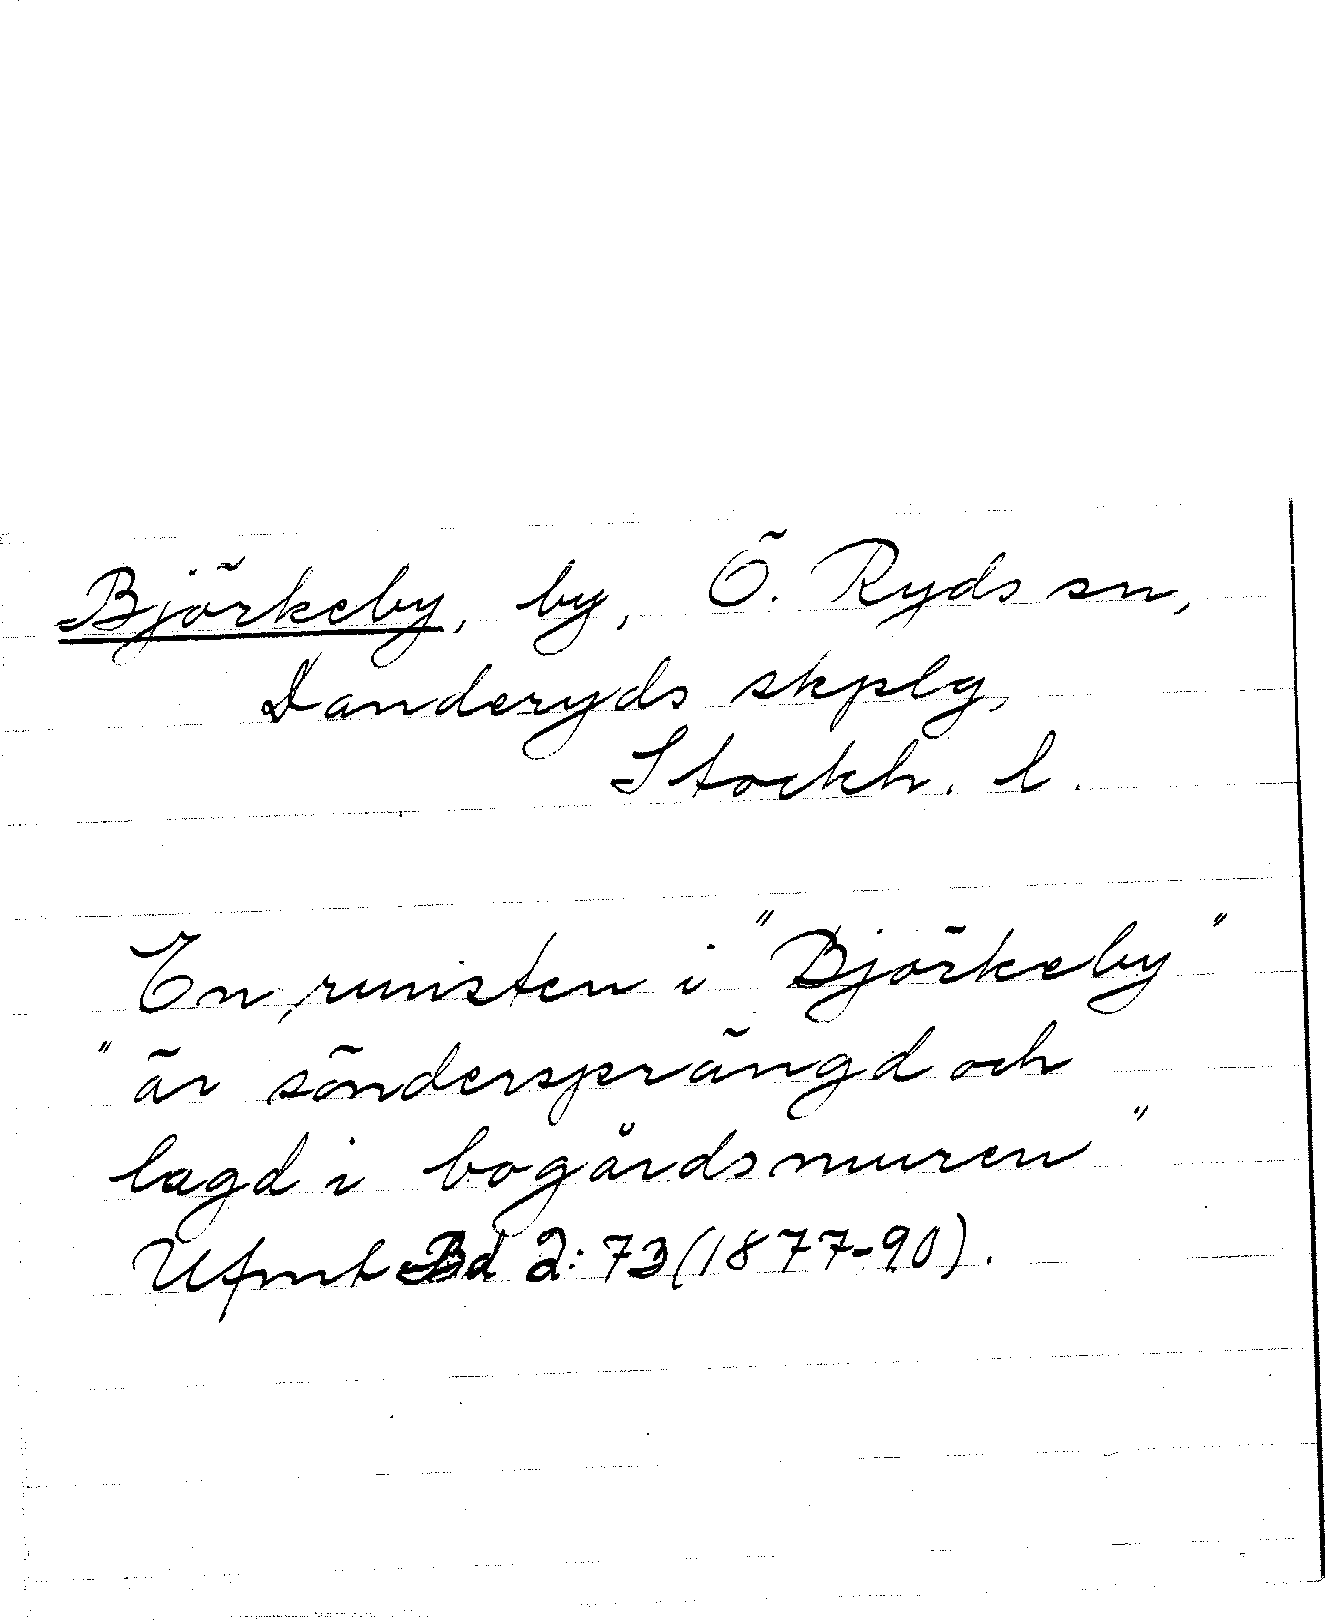 Björkeby, by, Ö. Ryds sn,
Danderyds skplg,
Stockh. l.
En runsten i "Björkeby"
"är söndersprängd och
lagd i bogårdsmuren"
Ufmt Bd 2: 73 (1877-90).